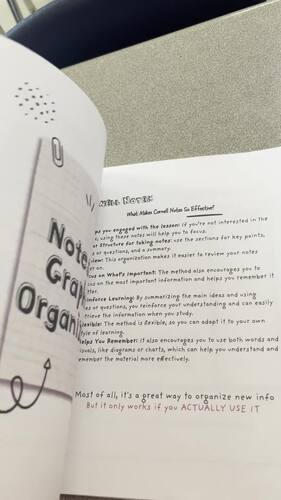 Note
Grap
Organi
nell Notes
What Makes Cornell Notes So Effective?
ps you engaged with the lesson: If you're not interested in the
using these notes will help you to focus.
ar Structure for taking notes: use the sections for key points,
s or questions, and a summary.
view: This organization makes it easier to review your notes
er on.
cus on What's Important: The method also encourages you to
us on the most important information and helps you remember it
tter.
inforce Learning: By summarizing the main ideas and using
es or questions, you reinforce your understanding and can easily
trieve the information when you study.
lexible: The method is flexible, so you can adapt it to your own
yle of learning.
elps You Remember: It also encourages you to use both words and
isuals, like diagrams or charts, which can help you understand and
remember the material more effectively.
Most of all, it's a great way to organize new info
But it only works if you ACTUALLY USE IT